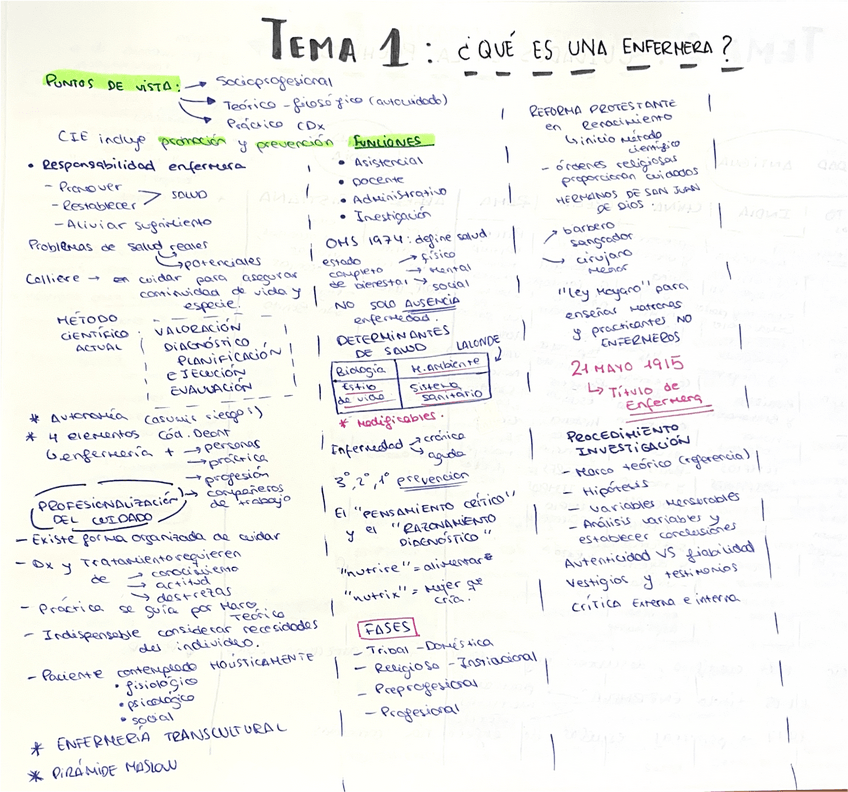 TEMA 1: ¿QUÉ ES UNA ENFERMERA?
PUNTOS DE VISTA: → Socioprofesional
→ Teórico - filosófico (autocuidado)
→ Práctico CDx
CIE incluye promoción y prevención
• Responsabilidad enfermera
- Promover
- Restablecer > SALUD
- Aliviar sufrimiento
Problemas de salud reales
→ potenciales
Colliere → en cuidar para asegurar
continuidad de vida y
especie!
MÉTODO
CIENTÍFICO
ACTUAL
VALORACIÓN
DIAGNÓSTICO
PLANIFICACIÓN
EJECUCIÓN
EVALUACIÓN
* Autonomía (asumir riesgos)
* 4 elementos Cód. Deont
↳ enfermería + → personas
→ práctica
→ profesión
→ compañeros
de trabajo
PROFESIONALIZACIÓN
DEL CUIDADO
- Existe forma organizada de cuidar
- Dx y Tratamiento requieren
de → conocimiento
→ actitud
→ destrezas
- Práctica se guía por Marco
Teórico
- Indispensable considerar necesidades
del individuo.
- Paciente contemplado HOLÍSTICAMENTE
• fisiológico
• psicológico
• social
* ENFERMERÍA TRANSCULTURAL
* PIRÁMIDE MASLOW
FUNCIONES
• Asistencial
• Docente
• Administrativo
• Investigación
OMS 1974: define salud
estado
completo
de bienestar
→ físico
→ mental
→ social
NO SOLO AUSENCIA
enfermedad.
DETERMINANTES
DE SALUD LALONDE
Biología | M. Ambiente
Estilo de vida | Sistema sanitario
* Modificables.
Enfermedad → crónica
→ aguda
3º, 2º, 1º prevención
El "PENSAMIENTO CRÍTICO"
y el "RAZONAMIENTO
DIAGNÓSTICO"
"nutrire" = alimentar
"nutrix" = Mujer que
cría.
FASES
- Tribal - Doméstica
- Religiosa - Institucional
- Preprofesional
- Profesional
REFORMA PROTESTANTE
en Renacimiento
↳ inicio método
científico
- órdenes religiosas
proporcionan cuidados
HERMANOS DE SAN JUAN
DE DIOS:
→ barbero
sangrador
→ cirujano
menor
"Ley Moyano" para
enseñar matronas
y practicantes NO
ENFERMEROS
21 MAYO 1915
↳ Título de
Enfermera
PROCEDIMIENTO
INVESTIGACIÓN
- Marco teórico (referencia)
- Hipótesis
- Variables mensurables
- Análisis variables y
establecer conclusiones
Autenticidad VS fiabilidad
Vestigios y testimonios
Crítica Externa e interna